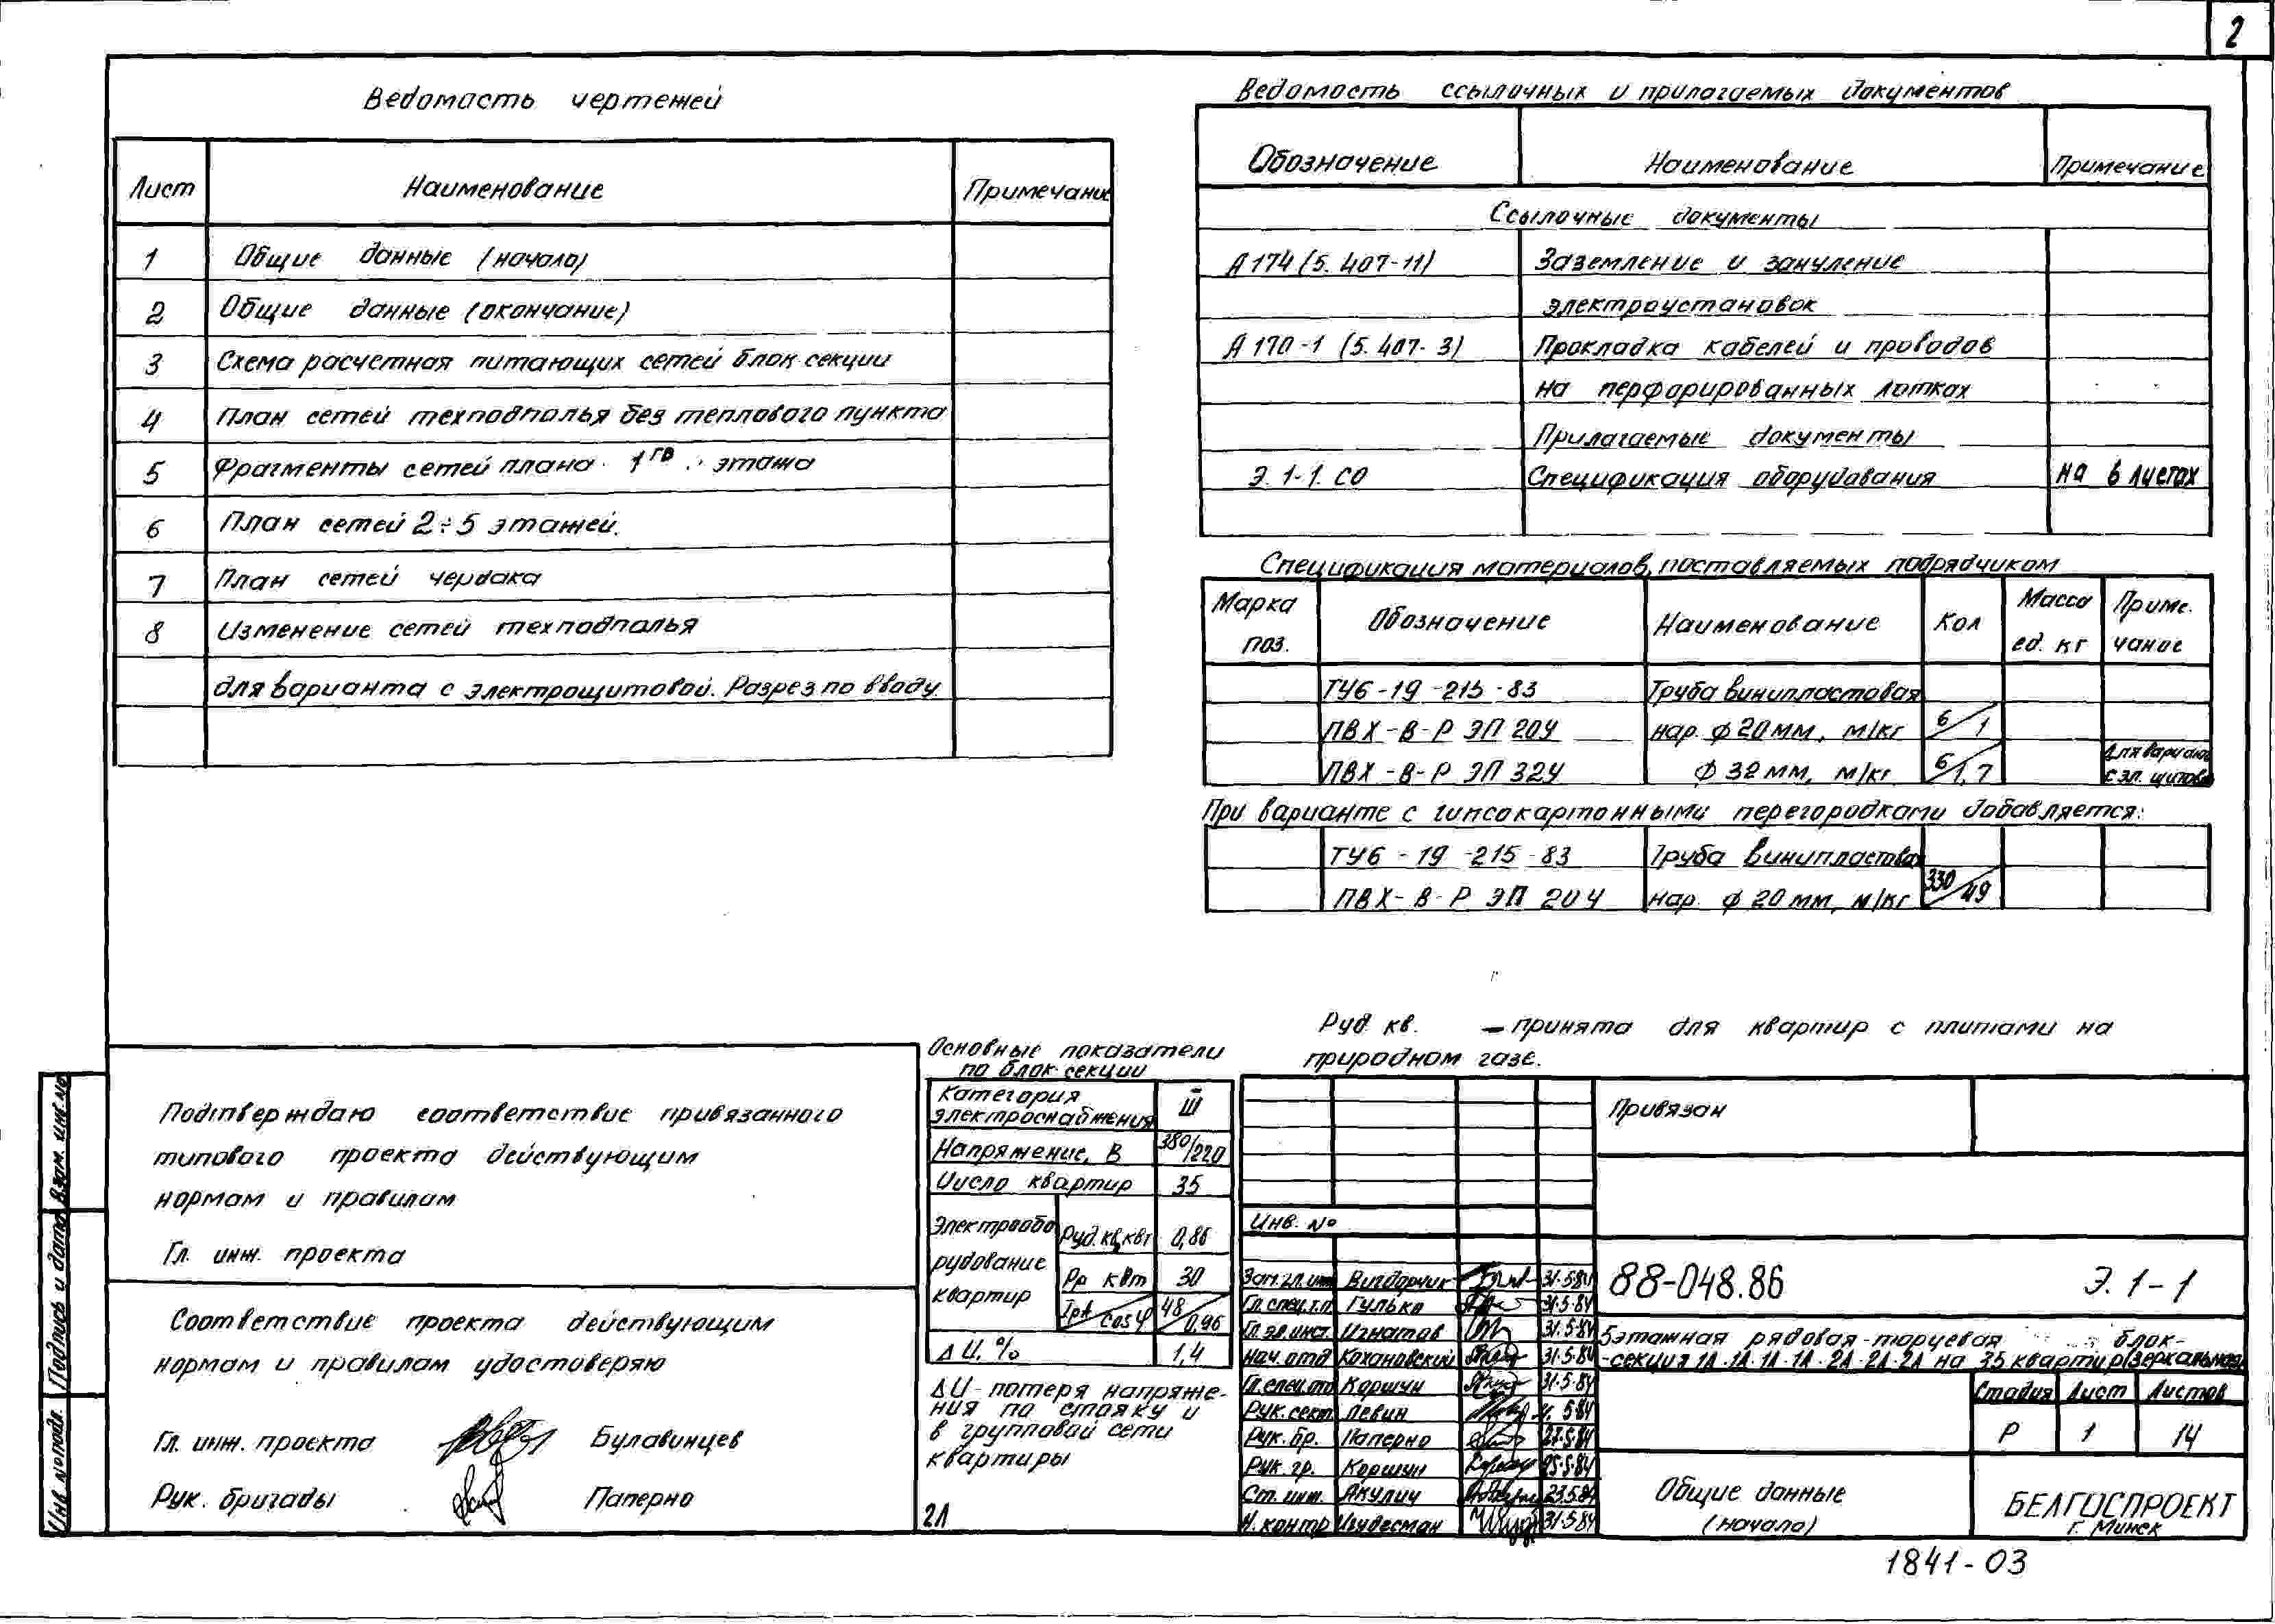 2
Ведомость чертежей
Лист Наименование Примечание
1 Общие данные (начало)
2 Общие данные (окончание)
3 Схема расчетная питающих сетей блок секции
4 План сетей техподполья без теплового пункта
5 Фрагменты сетей плана 1го этажа
6 План сетей 2÷5 этажей.
7 План сетей чердака
8 Изменение сетей техподполья
для варианта с электрощитовой. Разрез по вводу.
Ведомость ссылочных и прилагаемых документов
Обозначение Наименование Примечание
Ссылочные документы
А174 (5.407-11) Заземление и зануление
электроустановок
А170-1 (5.407-3) Прокладка кабелей и проводов
на перфорированных лотках
Прилагаемые документы
Э.1-1.СО Спецификация оборудования на 6 листах
Спецификация материалов, поставляемых подрядчиком
Марка поз. Обозначение Наименование Кол Масса ед. кг Приме-чание
ТУ6-19-215-83 Труба винипластовая
ПВХ-В-Р ЭП 20У нар. ф 20 мм, м/кг 6/1
ПВХ-В-Р ЭП 32У ф 32 мм, м/кг 6/1,7 Для варианта с эл. щитовой
При варианте с гипсокартонными перегородками добавляется:
ТУ6-19-215-83 Труба винипластовая
ПВХ-В-Р ЭП 20У нар. ф 20 мм, м/кг 330/49
Руд кв. - принята для квартир с плитами на
природном газе.
Подтверждаю соответствие привязанного
типового проекта действующим
нормам и правилам
Гл. инж. проекта
Соответствие проекта действующим
нормам и правилам удостоверяю
Гл. инж. проекта Булавинцев
Рук. бригады Паперно
Основные показатели
по блок-секции
Категория электроснабжения III
Напряжение, В 380/220
Число квартир 35
Электрообо
рудование
квартир
Руд.кв,квт 0,86
Рр квт 30
Iра/cosφ 48/0,96
ΔU, % 1,4
ΔU - потеря напряже-
ния по стояку и
в групповой сети
квартиры
2А
Привязан
Инв. №
Зам.гл.инж Вигдорчик 31.5.84
Гл.спец.т.о Гулько 31.5.84
Гл.эл.инст. Игнатов 31.5.84
Нач.отд Кохановский 31.5.84
Гл.спец.отд Коршун 31.5.84
Рук.сект. Левин 5.84
Рук.бр. Паперно 27.5.84
Рук.гр. Коршун 25.5.84
Ст.инж. Акулич 23.5.84
Н.контр Игудесман 31.5.84
88-048.86 Э.1-1
5этажная рядовая-торцевая блок-
-секция 1А.1А.1А.1А.2А.2А.2А на 35 квартир (зеркальная)
Стадия Лист Листов
Р 1 14
Общие данные
(начало)
БЕЛГОСПРОЕКТ
г. Минск
1841-03
Инв. № подл. Подпись и дата Взам. инв. №